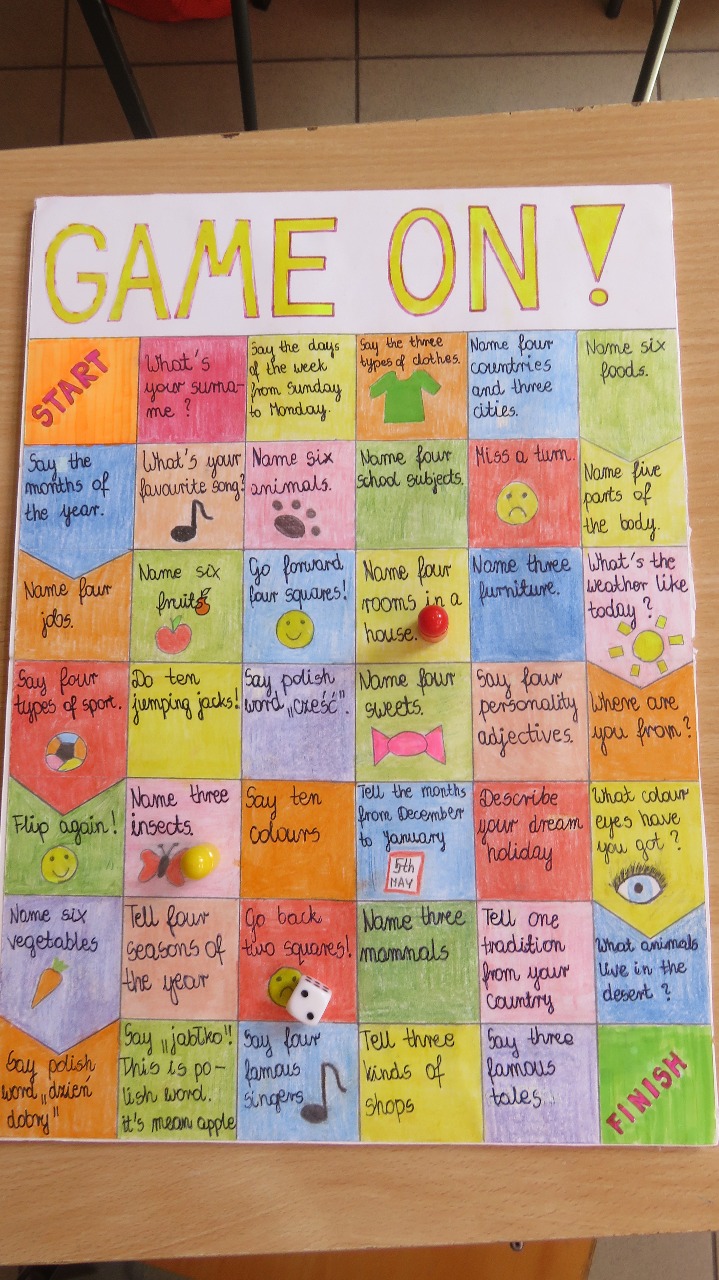 GAME ON!
START
What's
your surna-
me?
Say the days
of the week
from Sunday
to Monday.
Say the three
types of clothes.
Name four
countries
and three
cities.
Name six
foods.
Say the
months of
the year.
What's your
favourite song?
Name six
animals.
Name four
school subjects.
Miss a turn.
Name five
parts of
the body.
Name four
jobs.
Name six
fruits
Go forward
four squares!
Name four
rooms in a
house.
Name three
furniture.
What's the
weather like
today?
Say four
types of sport.
Do ten
jumping jacks!
Say polish
word „cześć".
Name four
sweets.
Say four
personality
adjectives.
Where are
you from?
Flip again!
Name three
insects.
Say ten
colours
Tell the months
from December
to January
5th
MAY
Describe
your dream
holiday
What colour
eyes have
you got?
Name six
vegetables
Tell four
seasons of
the year
Go back
two squares!
Name three
mammals
Tell one
tradition
from your
country
What animals
live in the
desert?
Say polish
word „dzień
dobry"
Say „jabłko"!
This is po-
lish word.
it's mean apple
Say four
famous
singers
Tell three
kinds of
shops
Say three
famous
tales
FINISH